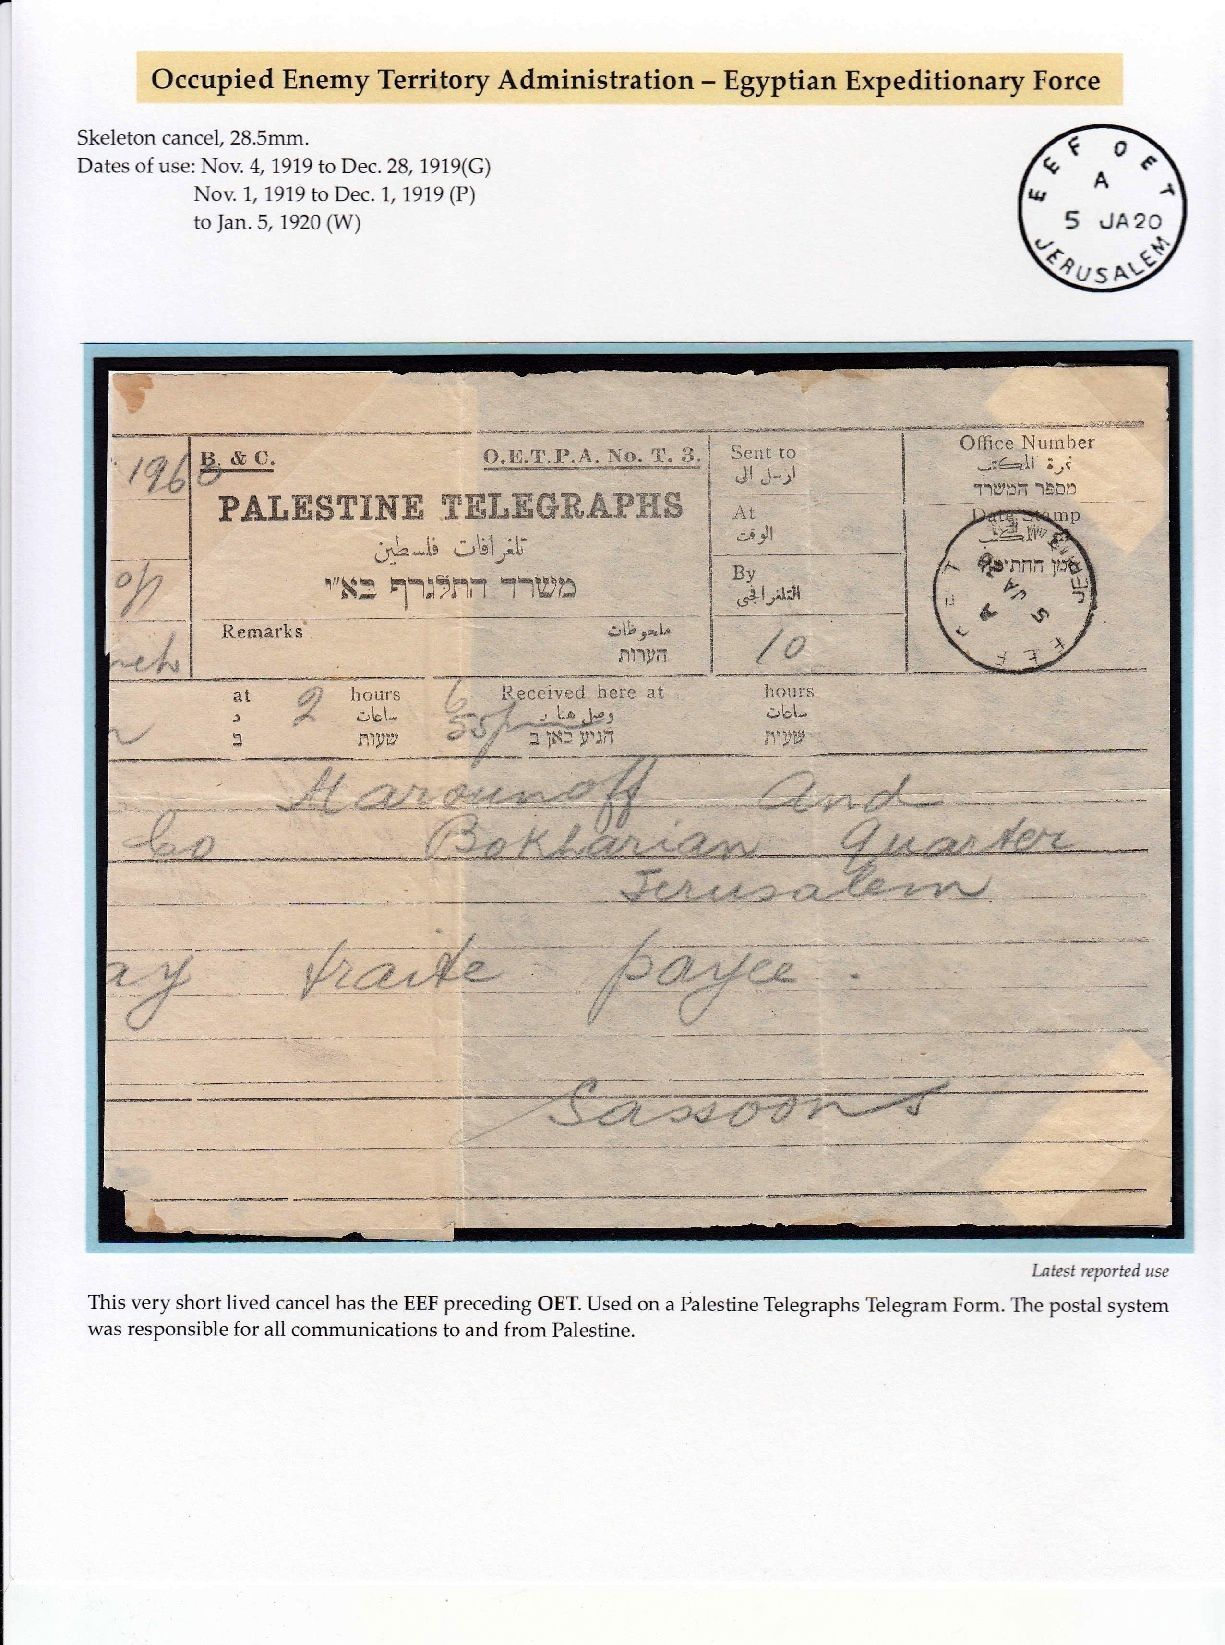 Occupied Enemy Territory Administration – Egyptian Expeditionary Force
Skeleton cancel, 28.5mm.
Dates of use: Nov. 4, 1919 to Dec. 28, 1919(G)
Nov. 1, 1919 to Dec. 1, 1919 (P)
to Jan. 5, 1920 (W)
EEF OET
A
5 JA20
JERUSALEM
B. & C. O.E.T.P.A. No. T. 3.
PALESTINE TELEGRAPHS
تلغرافات فلسطين
משרד התלגרף בא"י
Remarks ملحوظات
הערות
Sent to
ارسل الى
At
الوقت
By
التلغرافجى
10
Office Number
نمرة المكتب
מספר המשרד
Date Stamp
at 2 hours 6 Received here at hours
ساعات 55 وصل هنا ساعات
ב שעות הגיע כאן ב שעית
Marounoff and
Co Bokharian Quarter
Jerusalem
ay traite payee .
Sassoons
Latest reported use
This very short lived cancel has the EEF preceding OET. Used on a Palestine Telegraphs Telegram Form. The postal system
was responsible for all communications to and from Palestine.